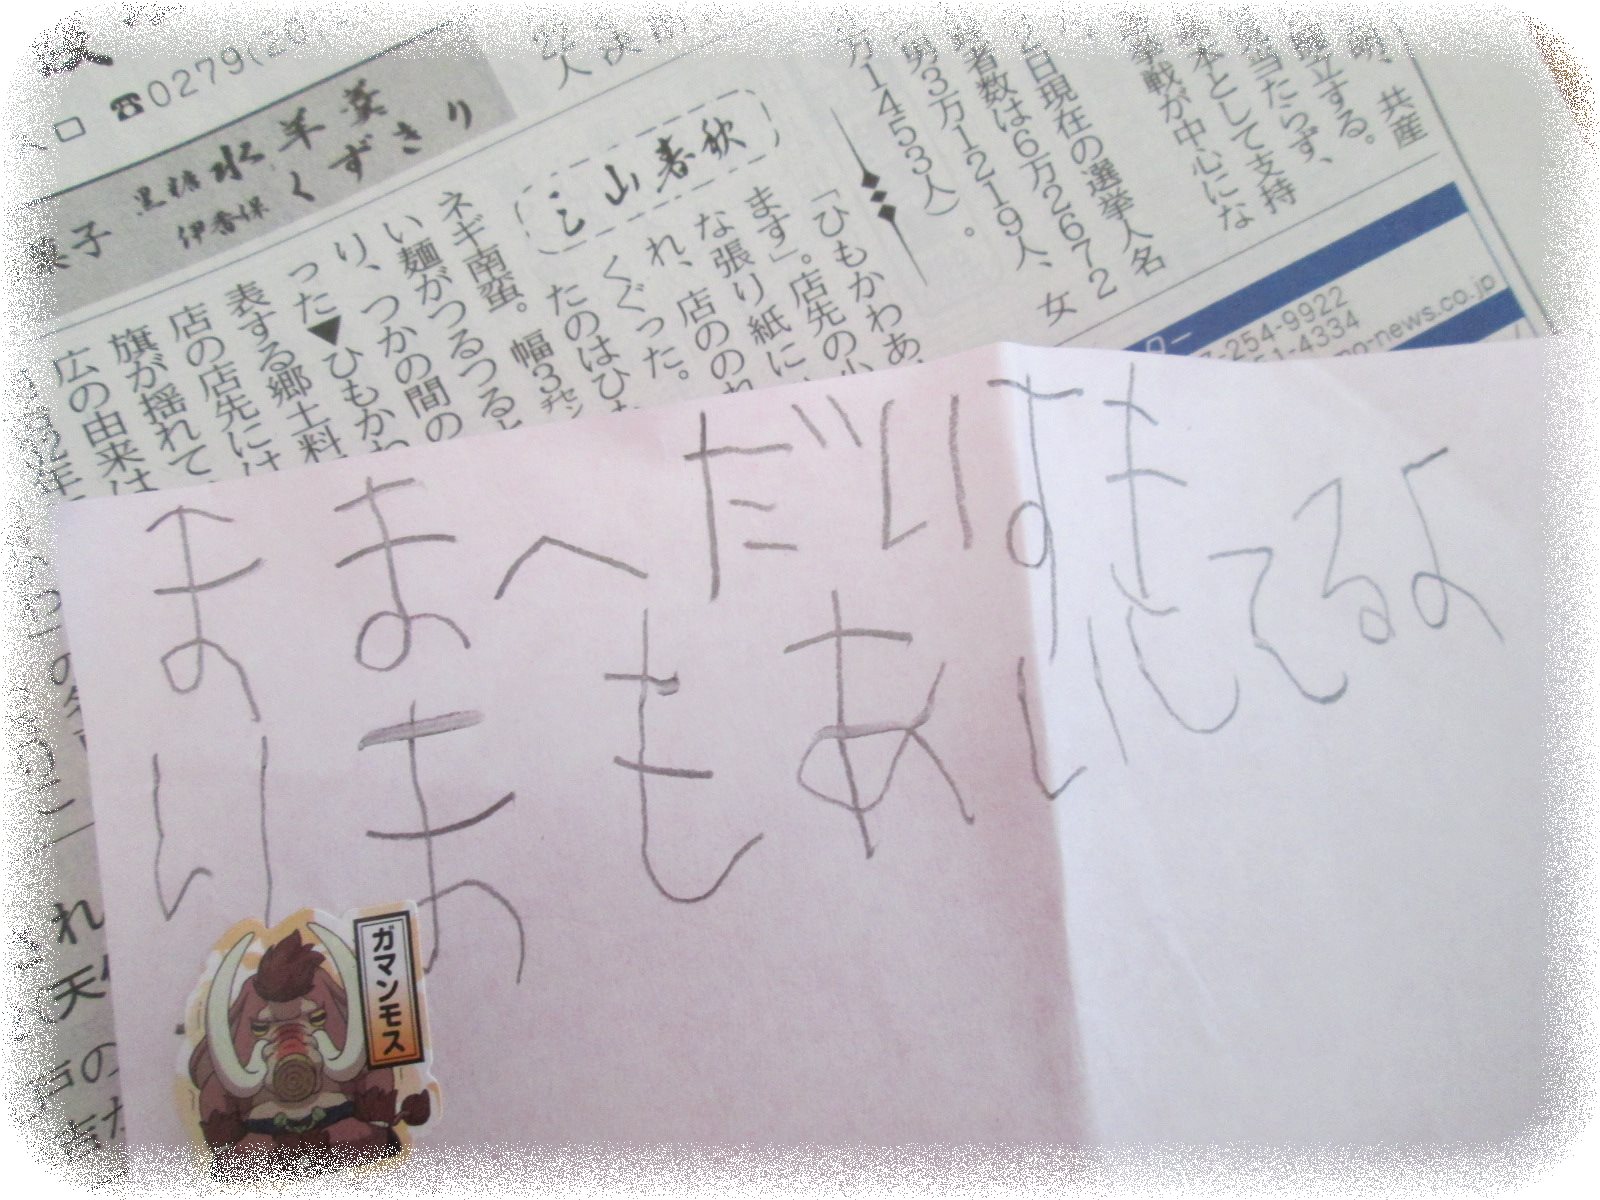 ままへだいすき
りおもあいしてるよ
ガマンモス
共産
立する。
当たらず、
本として支持
挙戦が中心にな
2日現在の選挙人名
者数は6万2672
男3万1219人、女
万1453人)。
254-9922
51-4334
o-news.co.jp
三山春秋
「ひもかわあ
ます」。店先の小
な張り紙に
れ、店ののれ
くぐった。
たのはひ
ネギ南蛮。幅3㌢
い麺がつるつると
り、つかの間の
った▼ひもかわ
表する郷土料
店の店先には
旗が揺れて
広の由来は
☎0279(20
黒糖水羊羹
伊香保くずきり